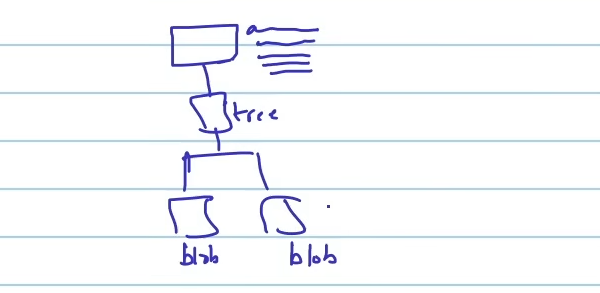 tree
blob blob